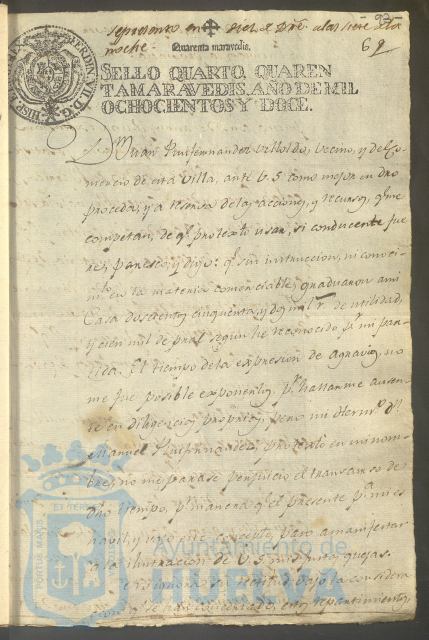 se presento en diez de Dre. a las siete de la
noche.
93
69
FERDIN. VII. D. G.
HISP.
Quarenta maravedis.
SELLO QUARTO, QUAREN
TA MARAVEDIS, AÑO DE MIL
OCHOCIENTOS Y DOCE.
Dn. Juan Ruifernandez Villoldo, vecino, y del Co-
mercio de esta Villa, ante V. S. como mejor en dro
proceda, y a reserva de las acciones, y recursos, qe. me
competan, de qe. protexto usar, si conducente fue
re, parezco, y digo: qe. sin instruccion, ni conoci-
mto. en la materia comerciable, graduaron a mi
Casa doscientos cinquenta, y dos mil rs. de utilidad,
y cien mil de pral. segun he reconocido pr. mi par-
tida. El tiempo de la expresion de agravios, no
me fue posible exponerlos, pr. hallarme ausen-
te en diligencias proprias, pero mi Herm.o Dn.
Manuel Ruifernandez, protextó en mi nom-
bre, no me parase perjuicio el transcurso de
dho tiempo, pr. manera qe. el presente pa. mi es
havil, y uso de para manifestar
a la ilustracion de V. S. mis justas quejas.
bajo la considera
cion qe. se han estos repartimientos,
PORTUS MARIS ET TERRAE
Ayuntamiento de
HUELVA